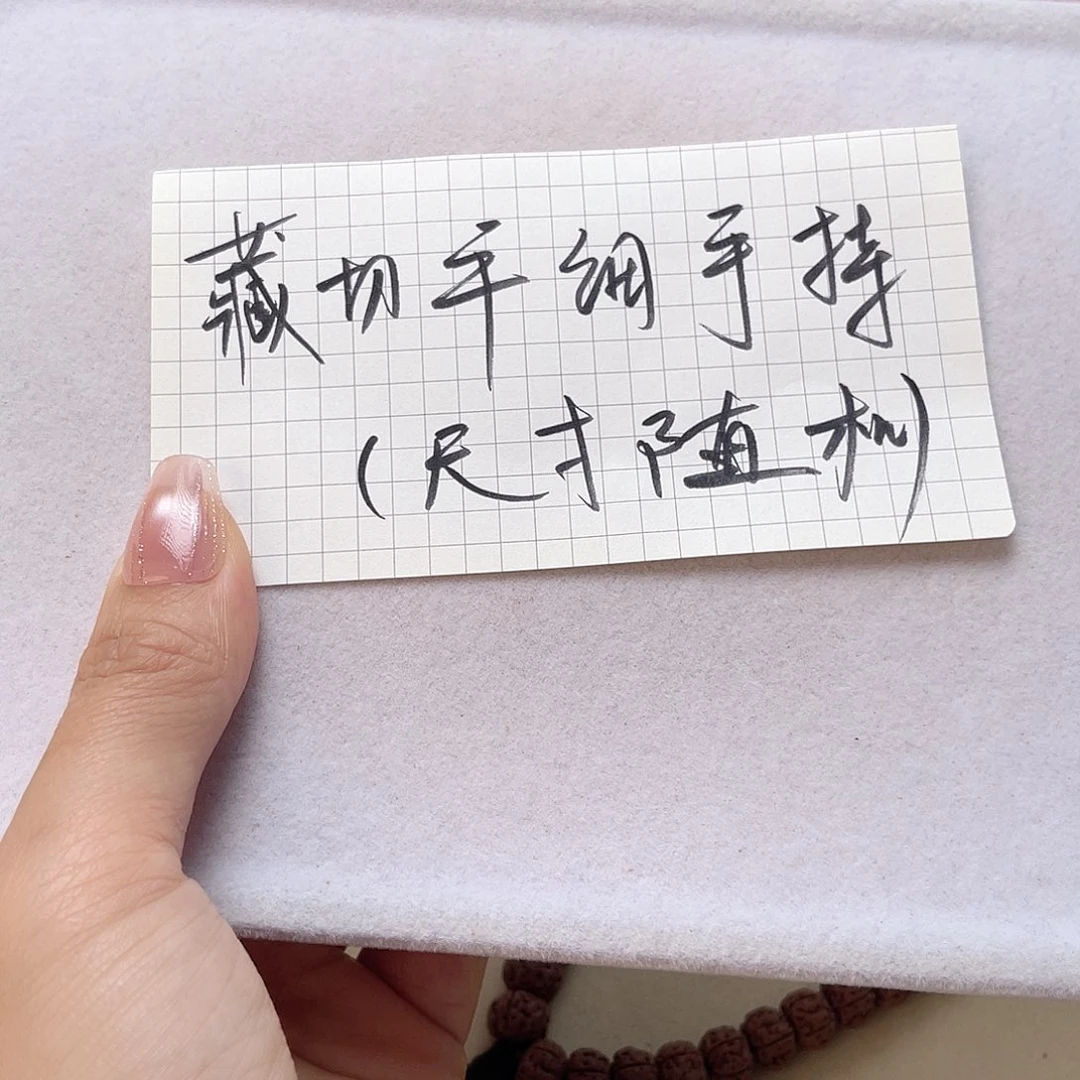 藏切平细手持
(尺寸随机)